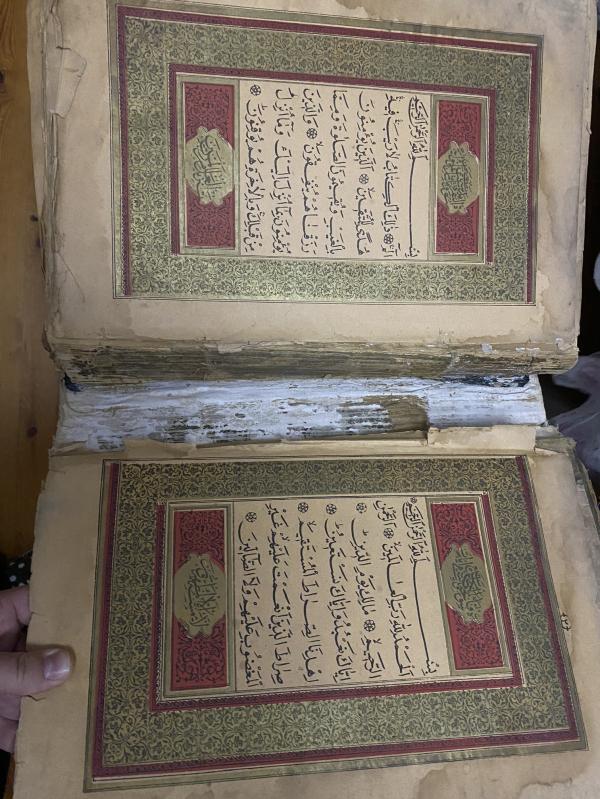 بِسْمِ اللهِ الرَّحْمٰنِ الرَّحِيمِ
اَلْحَمْدُ لِلّٰهِ رَبِّ الْعَالَمِينَ ۞ اَلرَّحْمٰنِ
الرَّحِيمِ ۞ مَالِكِ يَوْمِ الدِّينِ ۞
اِيَّاكَ نَعْبُدُ وَاِيَّاكَ نَسْتَعِينُ ۞
اِهْدِنَا الصِّرَاطَ الْمُسْتَقِيمَ ۞
صِرَاطَ الَّذِينَ اَنْعَمْتَ عَلَيْهِمْ غَيْرِ
الْمَغْضُوبِ عَلَيْهِمْ وَلَا الضَّالِّينَ ۞
بِسْمِ اللهِ الرَّحْمٰنِ الرَّحِيمِ
الٓمٓ ۞ ذٰلِكَ الْكِتَابُ لَا رَيْبَ فِيهِ
هُدًى لِلْمُتَّقِينَ ۞ اَلَّذِينَ يُؤْمِنُونَ
بِالْغَيْبِ وَيُقِيمُونَ الصَّلٰوةَ وَمِمَّا
رَزَقْنَاهُمْ يُنْفِقُونَ ۞ وَالَّذِينَ
يُؤْمِنُونَ بِمَا اُنْزِلَ اِلَيْكَ وَمَا اُنْزِلَ
مِنْ قَبْلِكَ وَبِالْاٰخِرَةِ هُمْ يُوقِنُونَ ۞